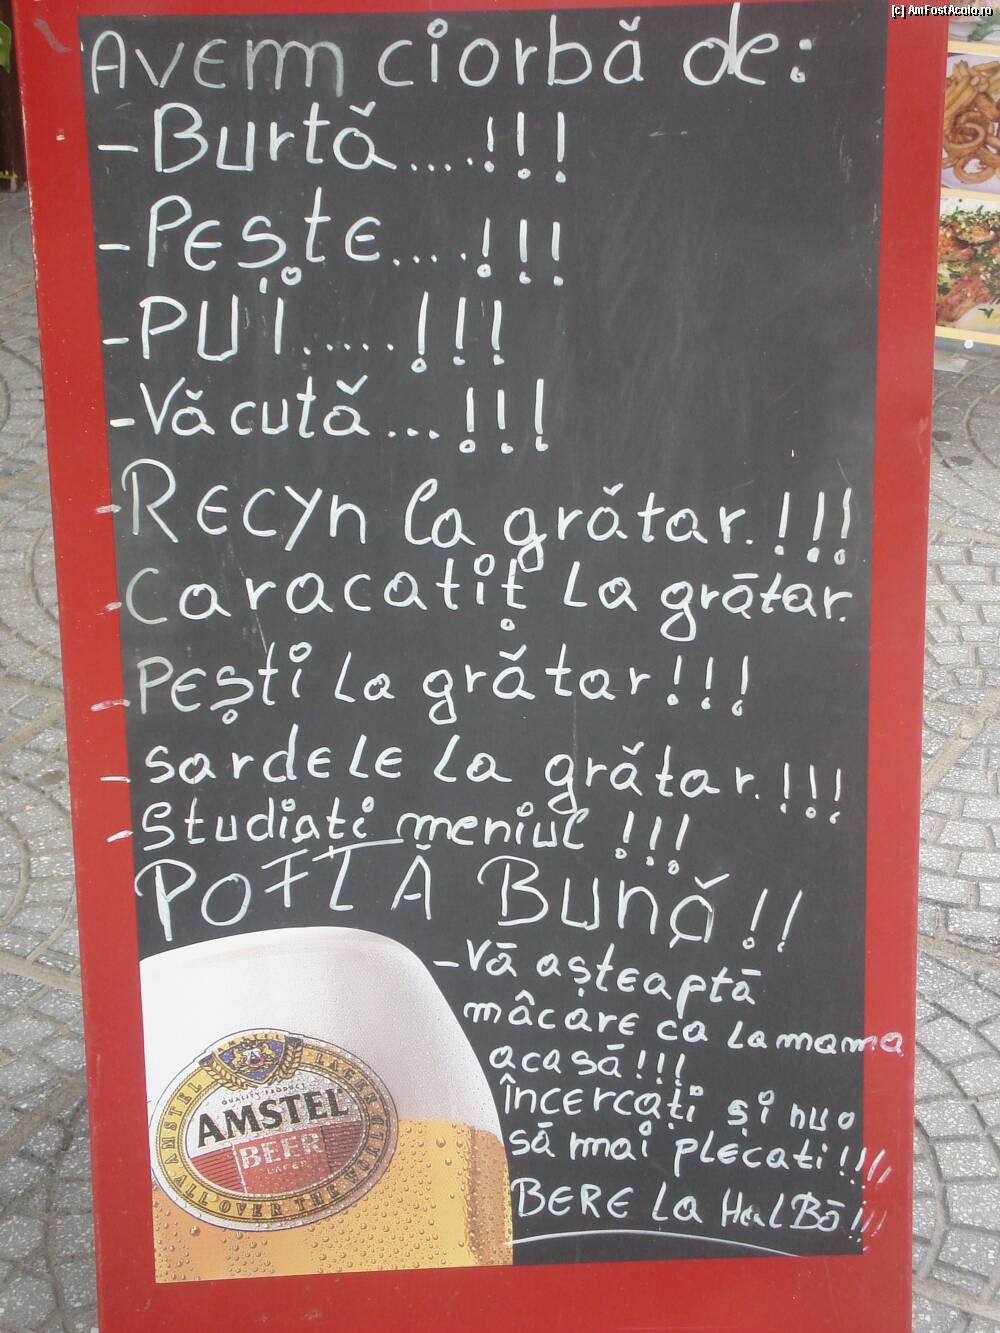 [c] AmFostAcolo.ro
Avem ciorbă de:
- Burtă....!!!
- Pește....!!!
- Pui.....!!!
- Văcută...!!!
- Recyn la grătar.!!!
- Caracatiț la grātar.
- Pești la grătar!!!
- sardele la grătar.!!!
- Studiați meniul!!!
POFTĂ Bună!!
- Vā așteaptā
mâcare ca la mama
acasā!!!
Încercați și nu o
sā mai plecati!!!//
BERE la HalBā!//
AMSTEL LAGER BIER
QUALITY PRODUCT
AMSTEL
BEER
LAGER
ALL OVER THE WORLD